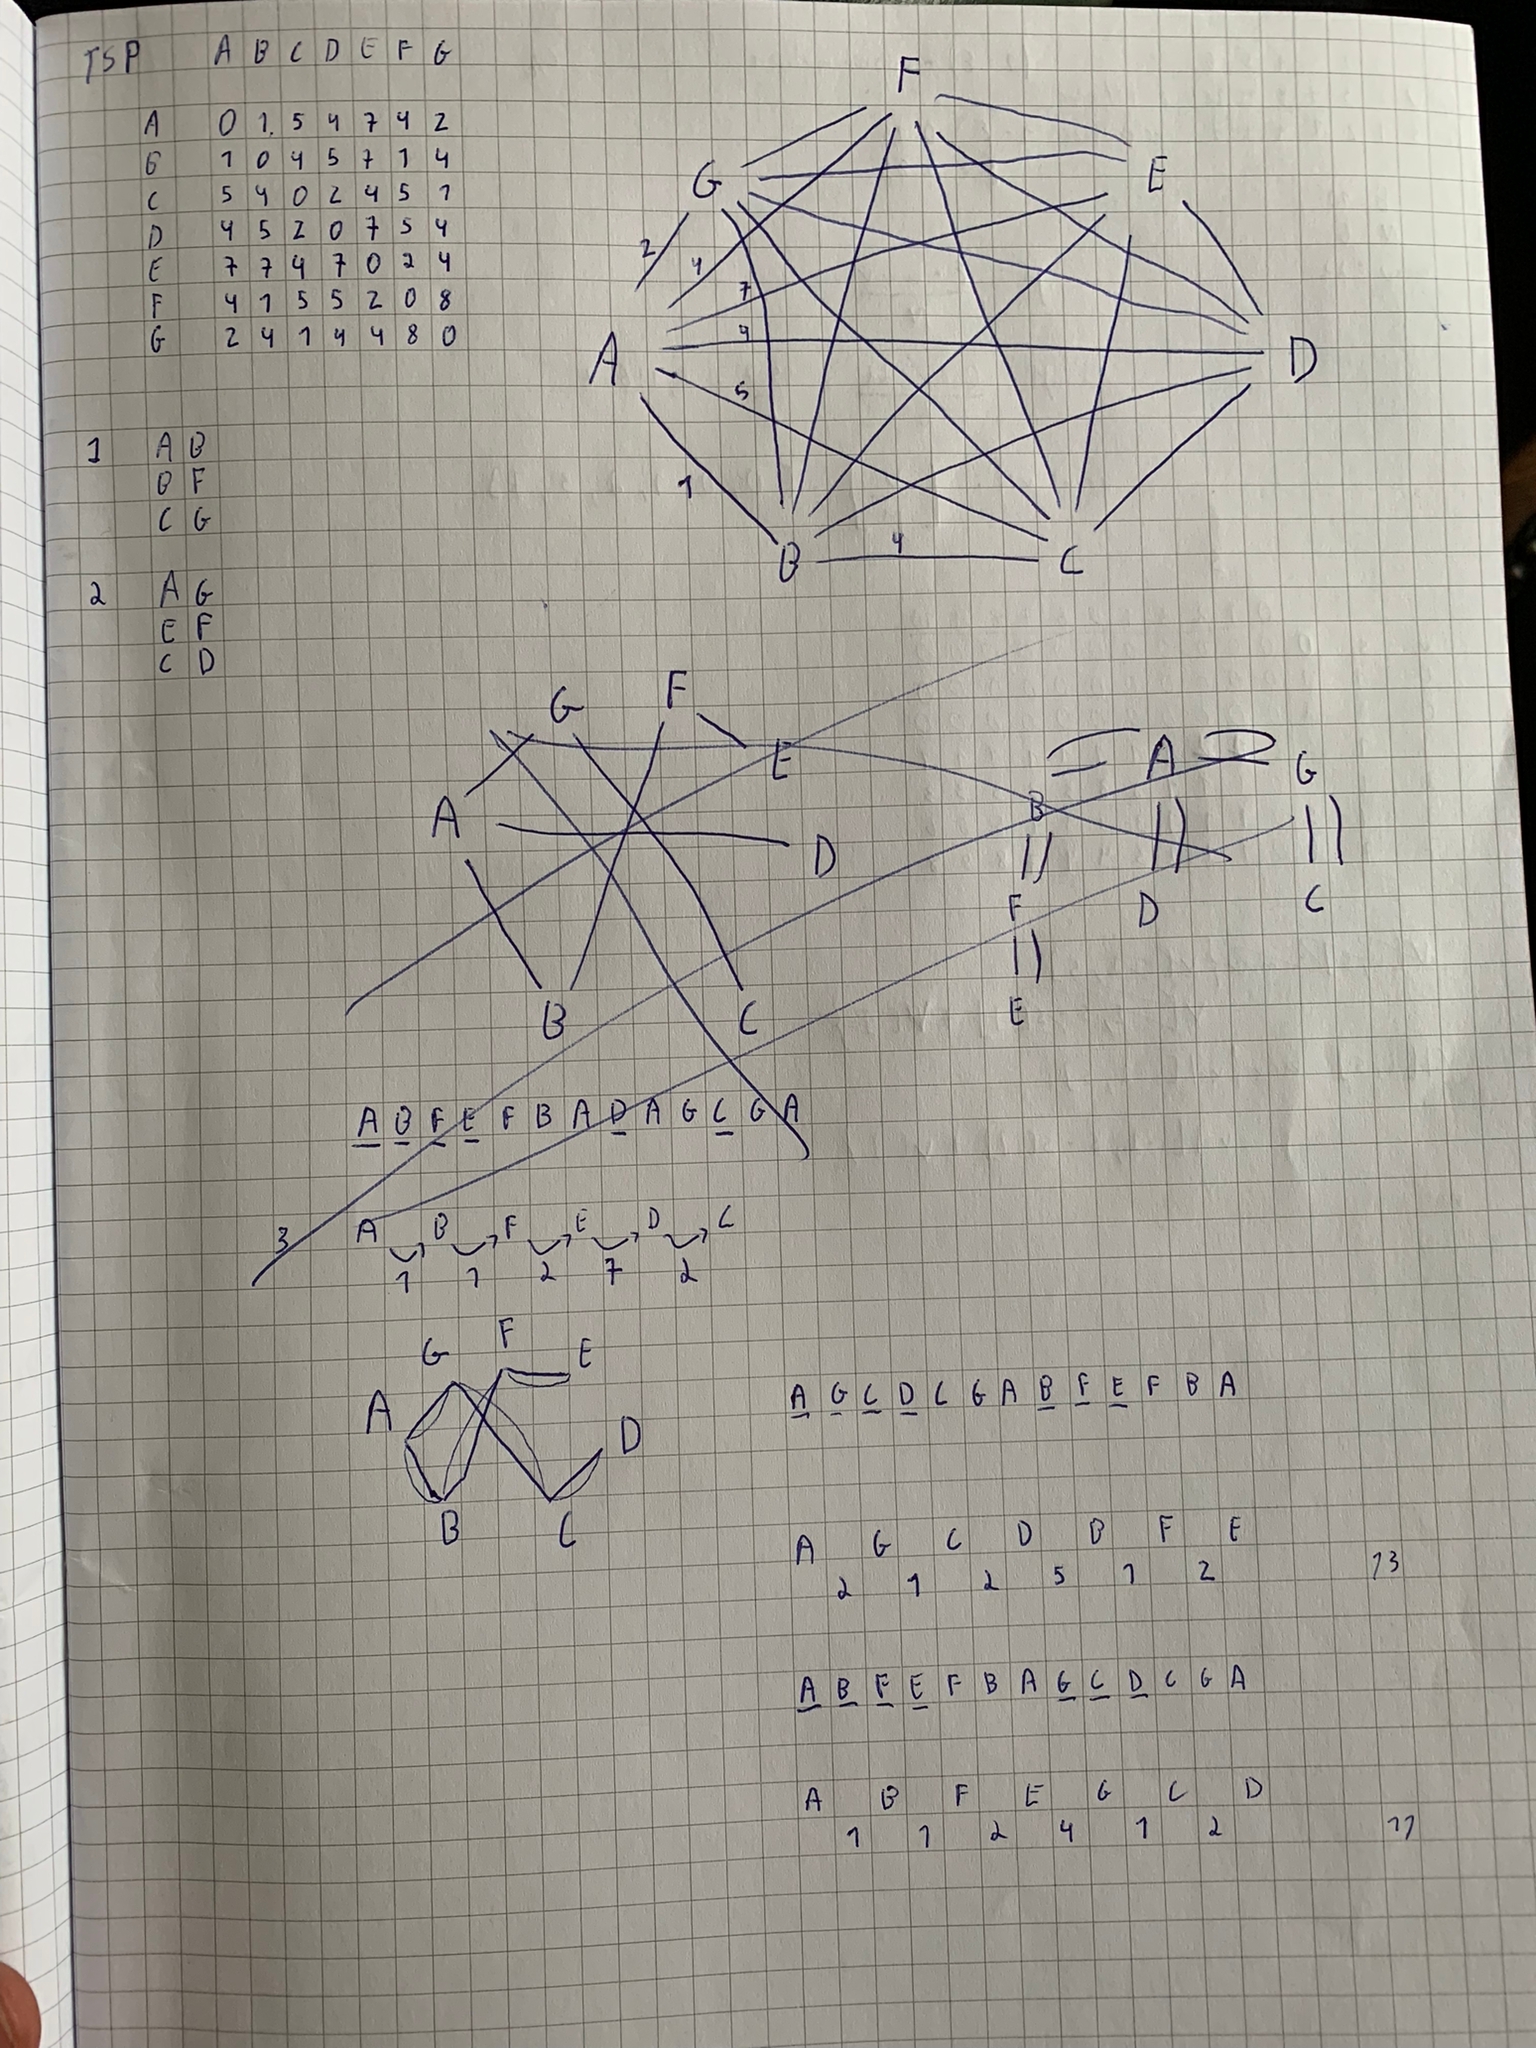 TSP A B C D E F G
A 0 1. 5 4 7 4 2
B 1 0 4 5 7 1 4
C 5 4 0 2 4 5 1
D 4 5 2 0 7 5 4
E 7 7 4 7 0 2 4
F 4 1 5 5 2 0 8
G 2 4 1 4 4 8 0
F
G E
2 4
7
4
A D
5
1
4
B C
1 A B
B F
C G
2 A G
E F
C D
G F
E
A
D
B C
A G
B
F D C
E
A B F E F B A D A G C G A
3 A B F E D C
1 1 2 7 2
G F E
A D
B C
A G C D C G A B F E F B A
A G C D B F E
2 1 2 5 1 2 13
A B F E F B A G C D C G A
A B F E G C D
1 1 2 4 1 2 11